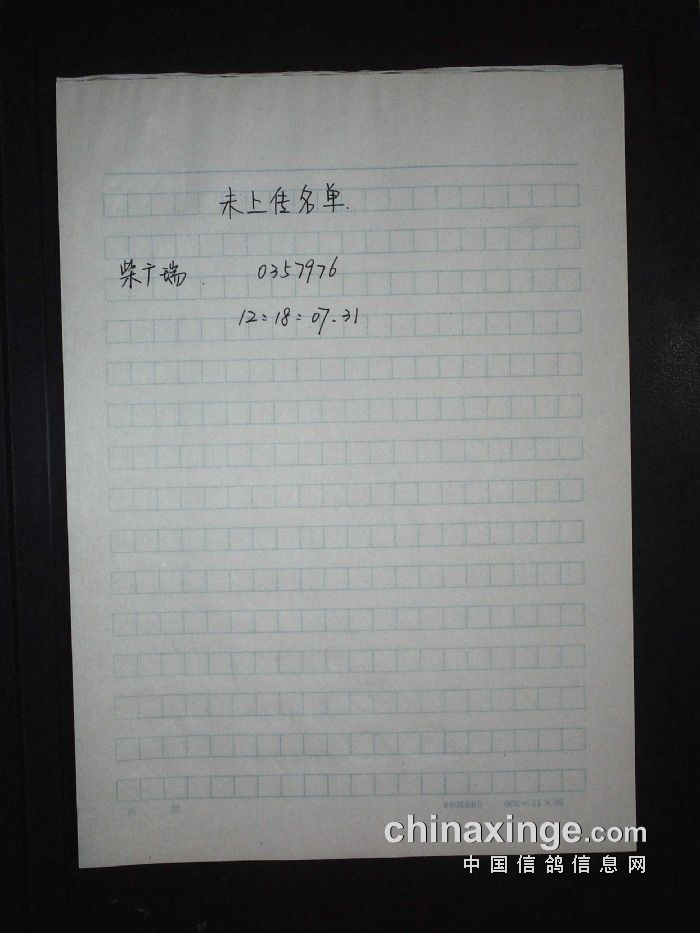 未上传名单.
柴广瑞. 0357976
12:18:07.31
20×15=300
chinaxinge.com
中国信鸽信息网